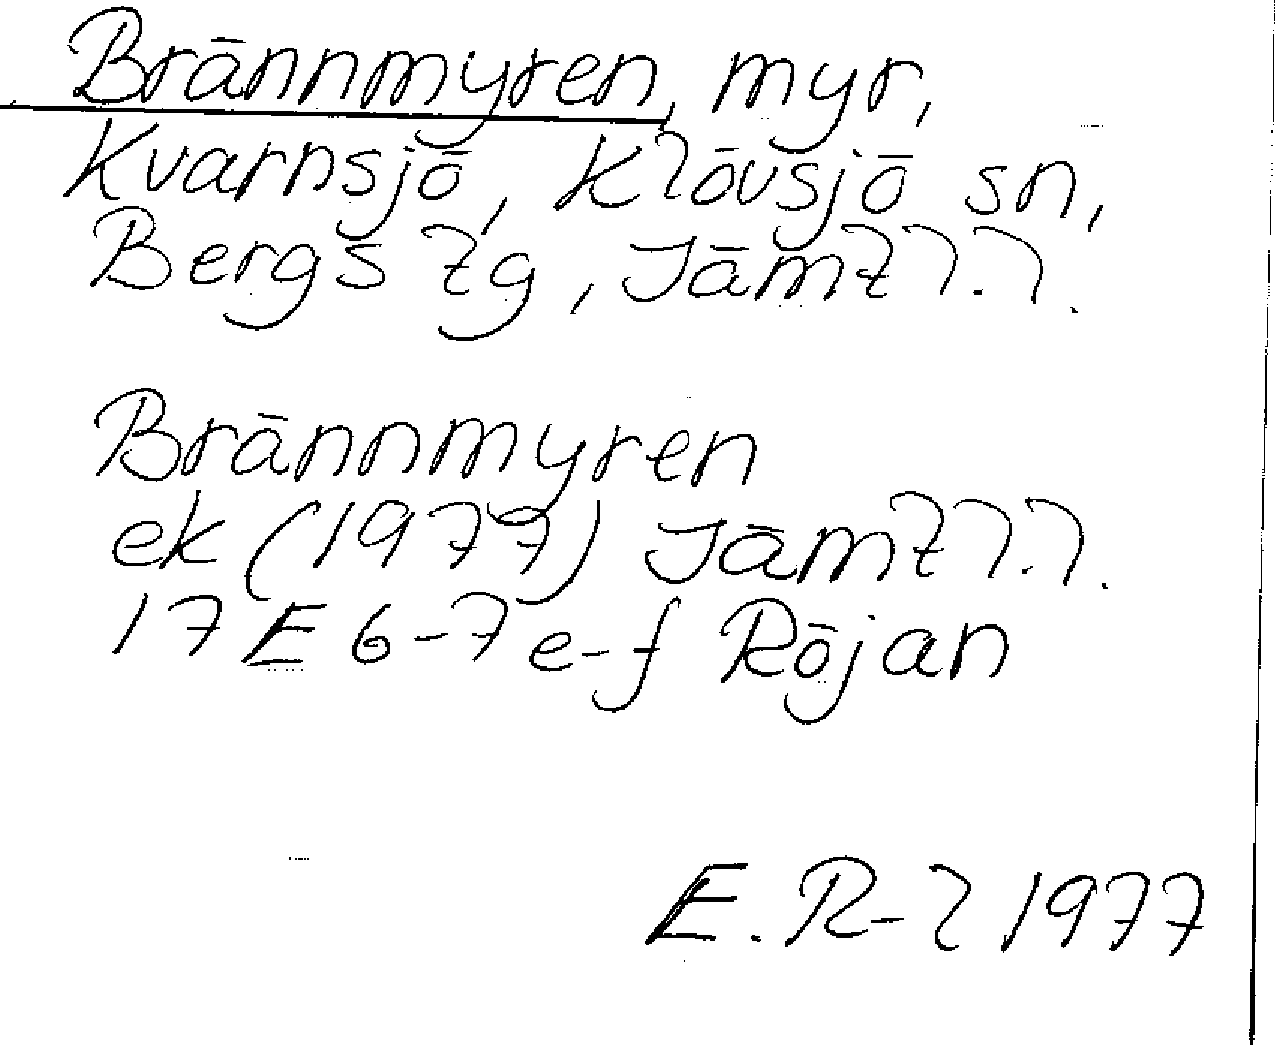 Brännmyren, myr,
Kvarnsjö, Klövsjö sn,
Bergs tg, Jämtl.l.
Brännmyren
ek (1977) Jämtl.l.
17E 6-7 e-f Röjan
E. R-l 1977